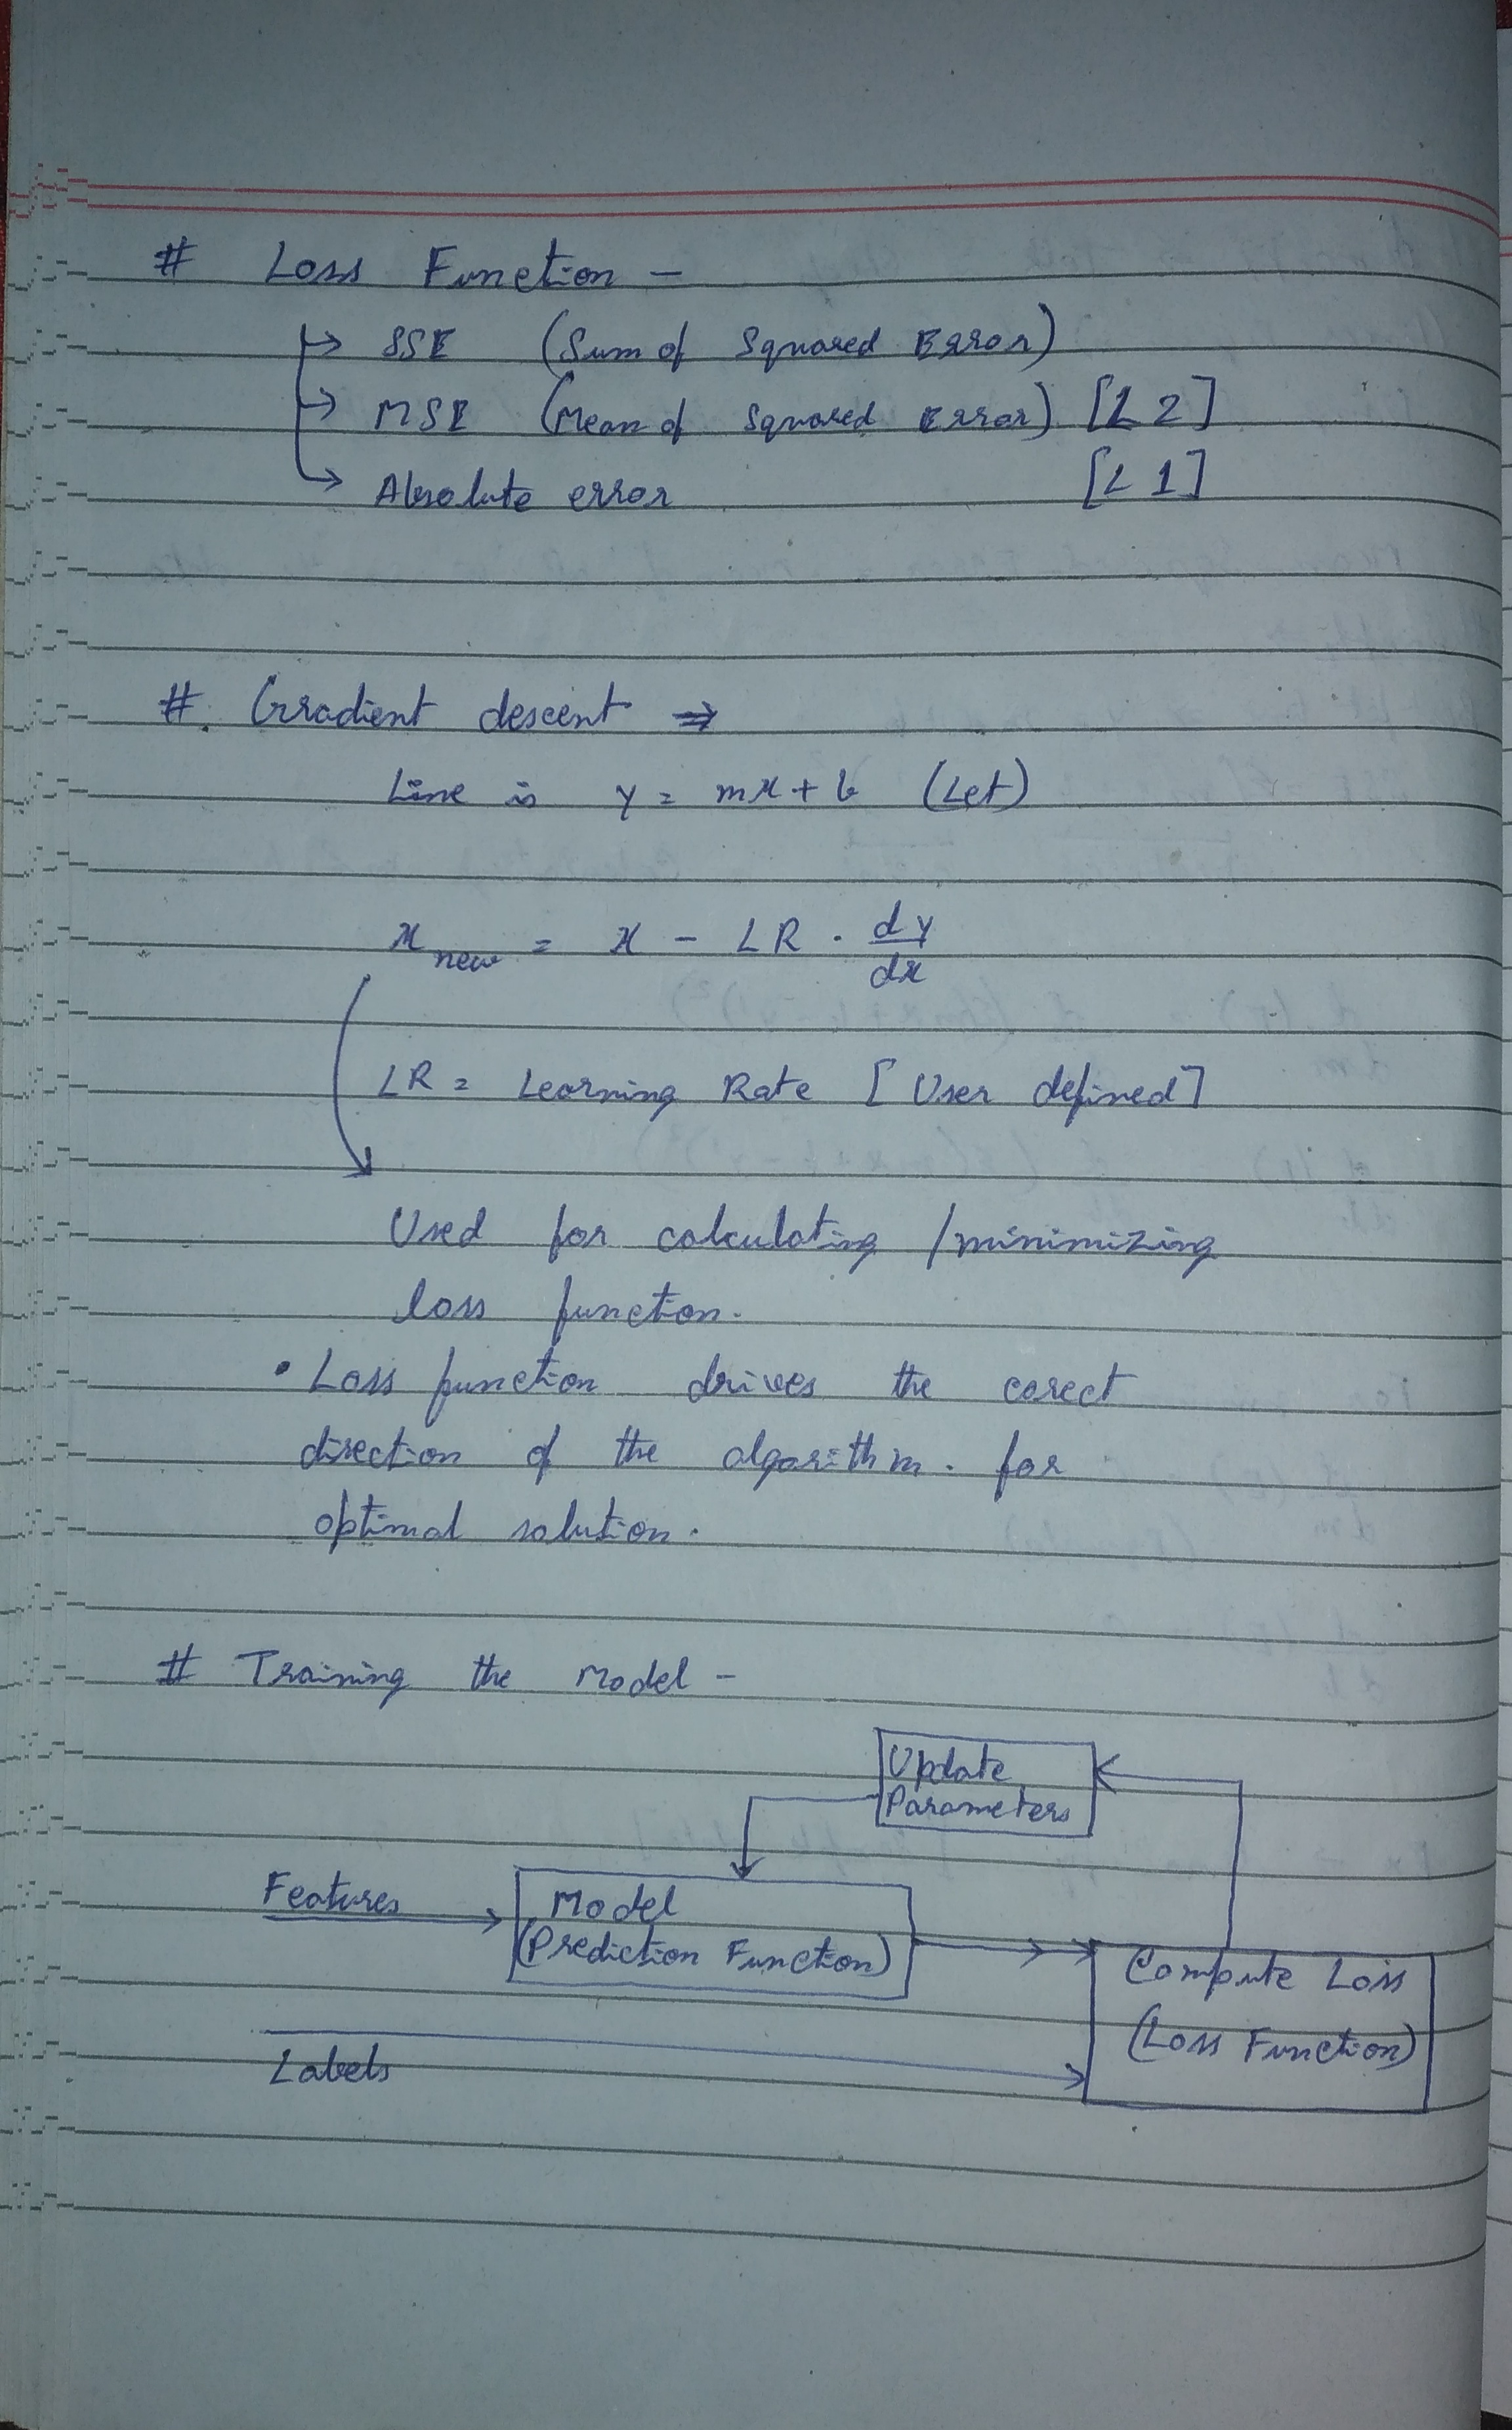 # Loss Function -
SSE (Sum of Squared Error)
MSE (Mean of Squared Error) [L2]
Absolute error [L1]
#. Gradient descent ⇒
Line is y = mx + b (Let)
x new = x - LR . dy/dx
LR = Learning Rate [User defined]
Used for calculating / minimizing
loss function.
• Loss function drives the corect
direction of the algorithm. for
optimal solution.
# Training the Model -
Update
Parameters
Features
Model
(Prediction Function)
Compute Loss
(Loss Function)
Labels